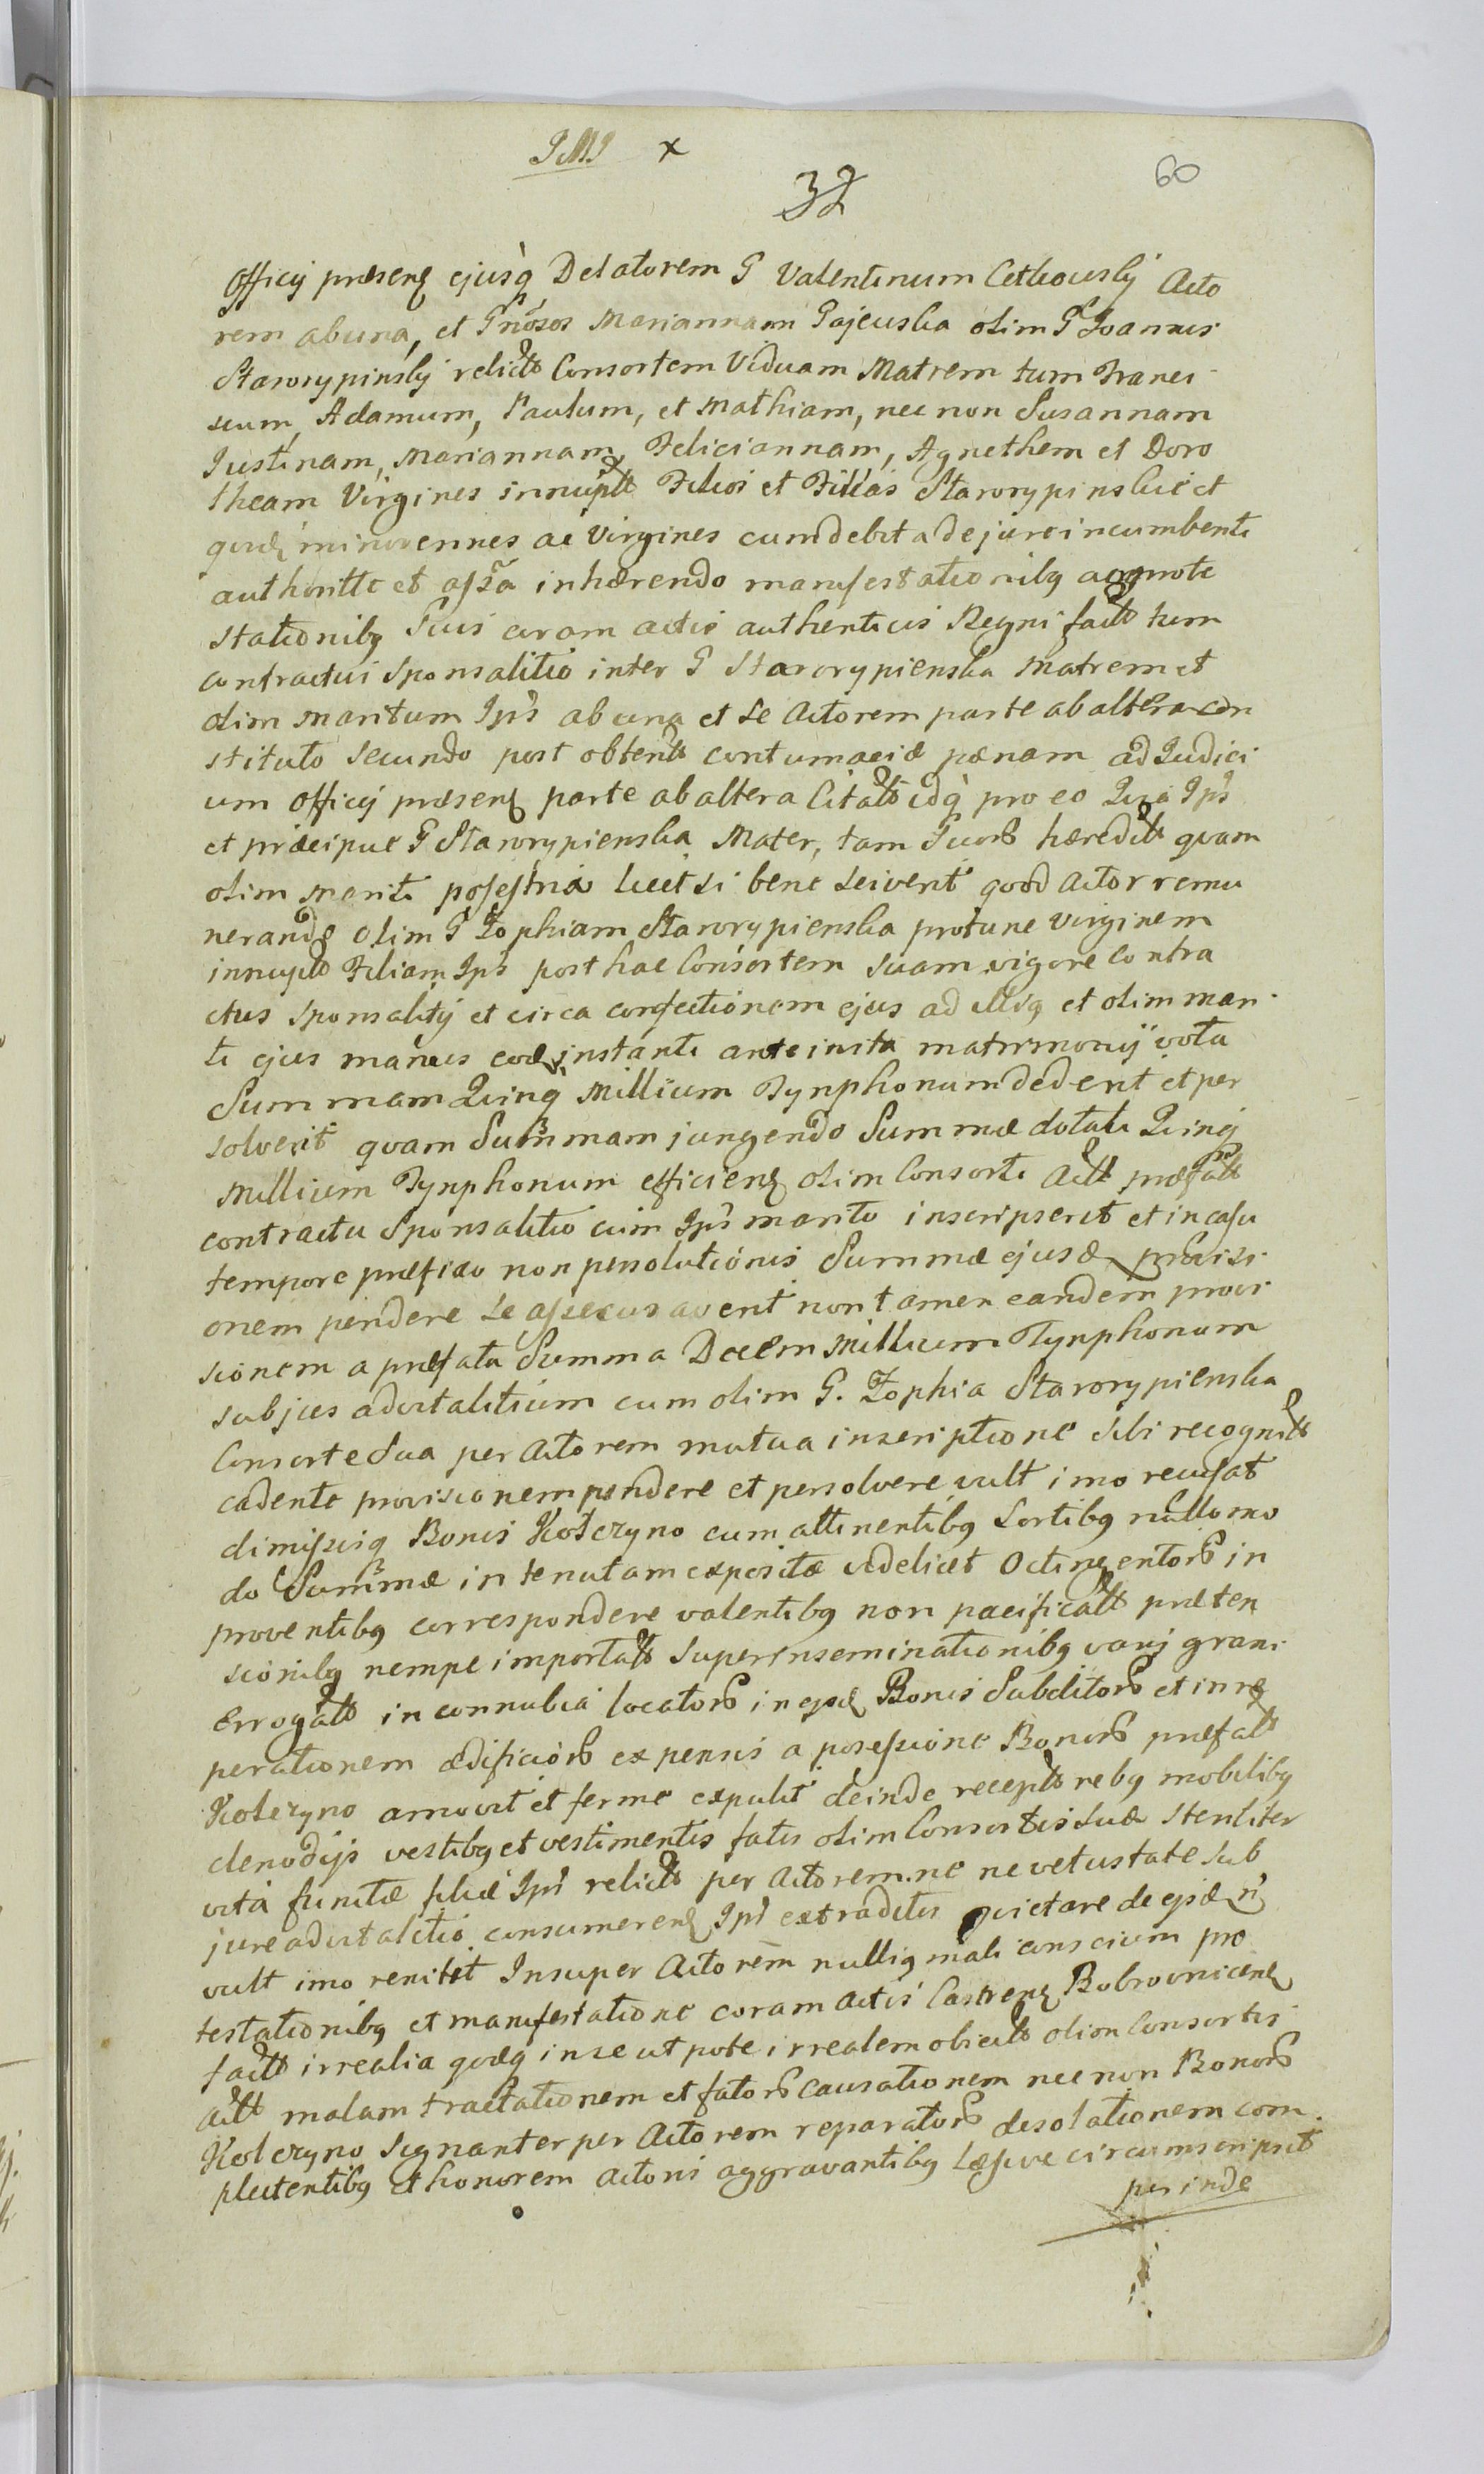 IMI x
32
60
Officij præsenʒ ejusq̀ Delatorem G Valentinum Cethowsky Acto
rem ab una, et Gnosos Mariannam Gajewska olim G Joannis
Starorypinsky relict Consortem Viduam Matrem tum Franci
scum, Adamum, Paulum, et Mathiam, nec non Susannam
Justinam, Mariannam, Feliciannam, Agnethem et Doro
theam Virgines innupt Filios et Filias Starorypinskie et
minorennes ac Virgines cum debita de jure incumbenti
authoritte et inhærendo manifestationibꝯ
stationibꝯ Suis coram actis authenticis Regni fact tum
contractui Sponsalitio inter G Starorypienska Matrem et
olim Maritum Ips ab una et Se Actorem parte ab altera con
stituto secundo post obtent contumaciæ pænam ad Judici
um Officij præsenʒ parte ab altera Citat idq̀ pro eo Quia Ips
et præcipue G Starorypienska Mater, tam Suor hæredit quam
olim Mariti posestria licet si bene sciverit quod Actor remu
nerandʒ olim G Zophiam Starorypienska protunc Virginem
innupt Filiam Ips post hac Consortem Suam vigore Contra
ctus Sponsalitij et circa confectionem ejus ad illiꝯ et olim Mari
ti ejus manus instanti ante inita matrimonij vota
Summam Quinq Millium Tynphonum dederit et per
solverit quam Summam jungendo Summæ dotali Quinq
Millium Tynphonum efficienʒ olim Consorti Act præfatt
contractu Sponsalitio cum Ips marito inscripserit et in casu
tempore præfixo non persolutionis Summæ ejusd provisi
onem pendere Se assecuraverit non tamen eandem provi
sionem a præfata Summa Decem Millium Tynphonum
subjus advitalitium cum olim G. Zophia Starorypienska
Consorte Sua per Actorem mutua inscriptione Sibi recognit
cadente provisionem pendere et persolvere vult imo recusat
dimissiq Bonis Kołczyno cum attinentibꝯ Sortibꝯ nullo mo
do Summæ in tenutam expositæ videlicet Octingentor in
proventibꝯ correspondere valentibꝯ non pacificatt præten
sionibꝯ nempe importatt Superinseminationibꝯ varij grani
Errogatt in connubia locator in Bonis Subditor et in re
perationem ædificior expensis a possessione Bonor præfatt
Kołczyno amovit et ferme expulit deinde recept rebꝯ mobilibꝯ
clenodijs vestibꝯ et vestimentis fatis olim Consortis Suæ Steriliter
vita functæ filiæ Ips relict per Actorem ne ne vetustate Sub
jure advitalitio consumerenʒ Ips extraditis qvietare de
vult imo renitet Insuper Actorem nulliꝯ mali conscium pro
testationibꝯ et manifestatione coram Actis Castrenʒ Bobrovnicenʒ
fact irrealia in se utpote irrealem obiect olim Consortis
Act malam tractationem et fator causationem nec non Bonor
Kołczyno Signanter per Actorem reparator desolationem com
plectentibꝯ et honorem Actoris aggravantibꝯ Læsive circumscripsit
perinde